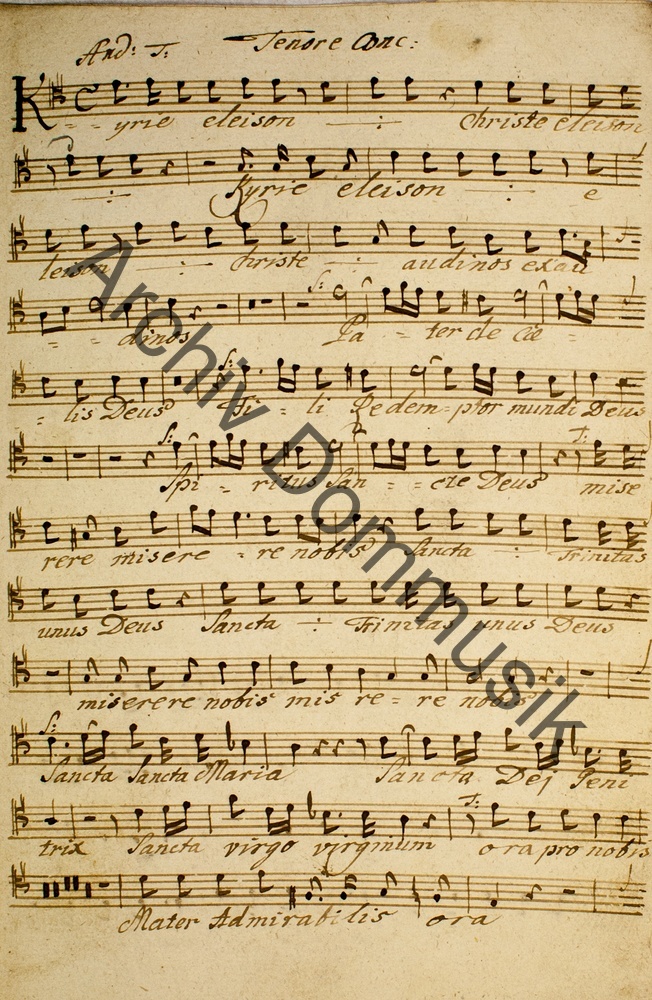 And: T: Tenore Conc:
Kyrie eleison Christe eleison
Kyrie eleison e
leison Christe audinos exau
dinos S: Pa - ter de cœ -
lis Deus S: Fi - li Redem - ptor mundi Deus
S: Spi - ritus San - - cte Deus T: mise
rere misere - re nobis Sancta Trinitas
unus Deus Sancta Trinitas unus Deus
miserere nobis mis re - re nobis
S: Sancta Sancta Maria Sancta Dej Geni
trix Sancta virgo virginum T: ora pro nobis
Mater Admirabilis ora
Archiv Dommusik